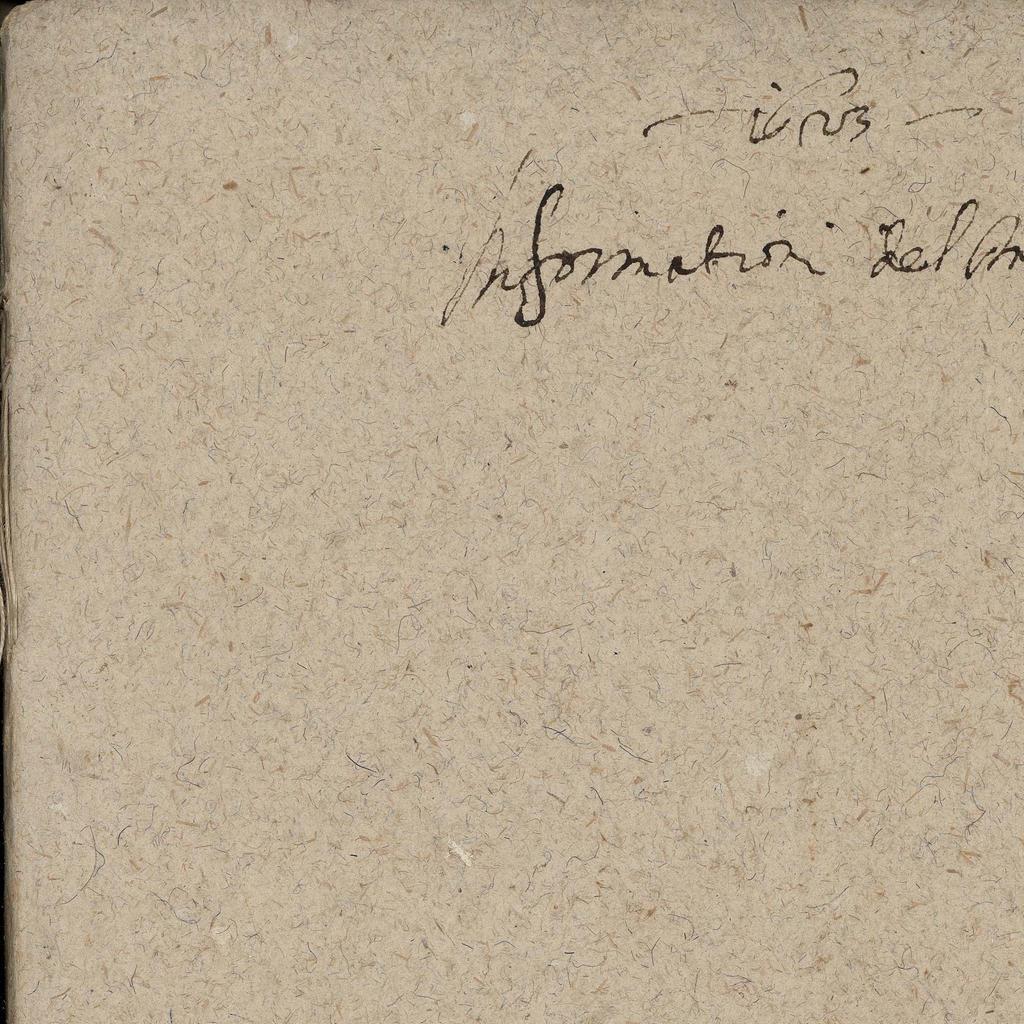 1623
Informationi del